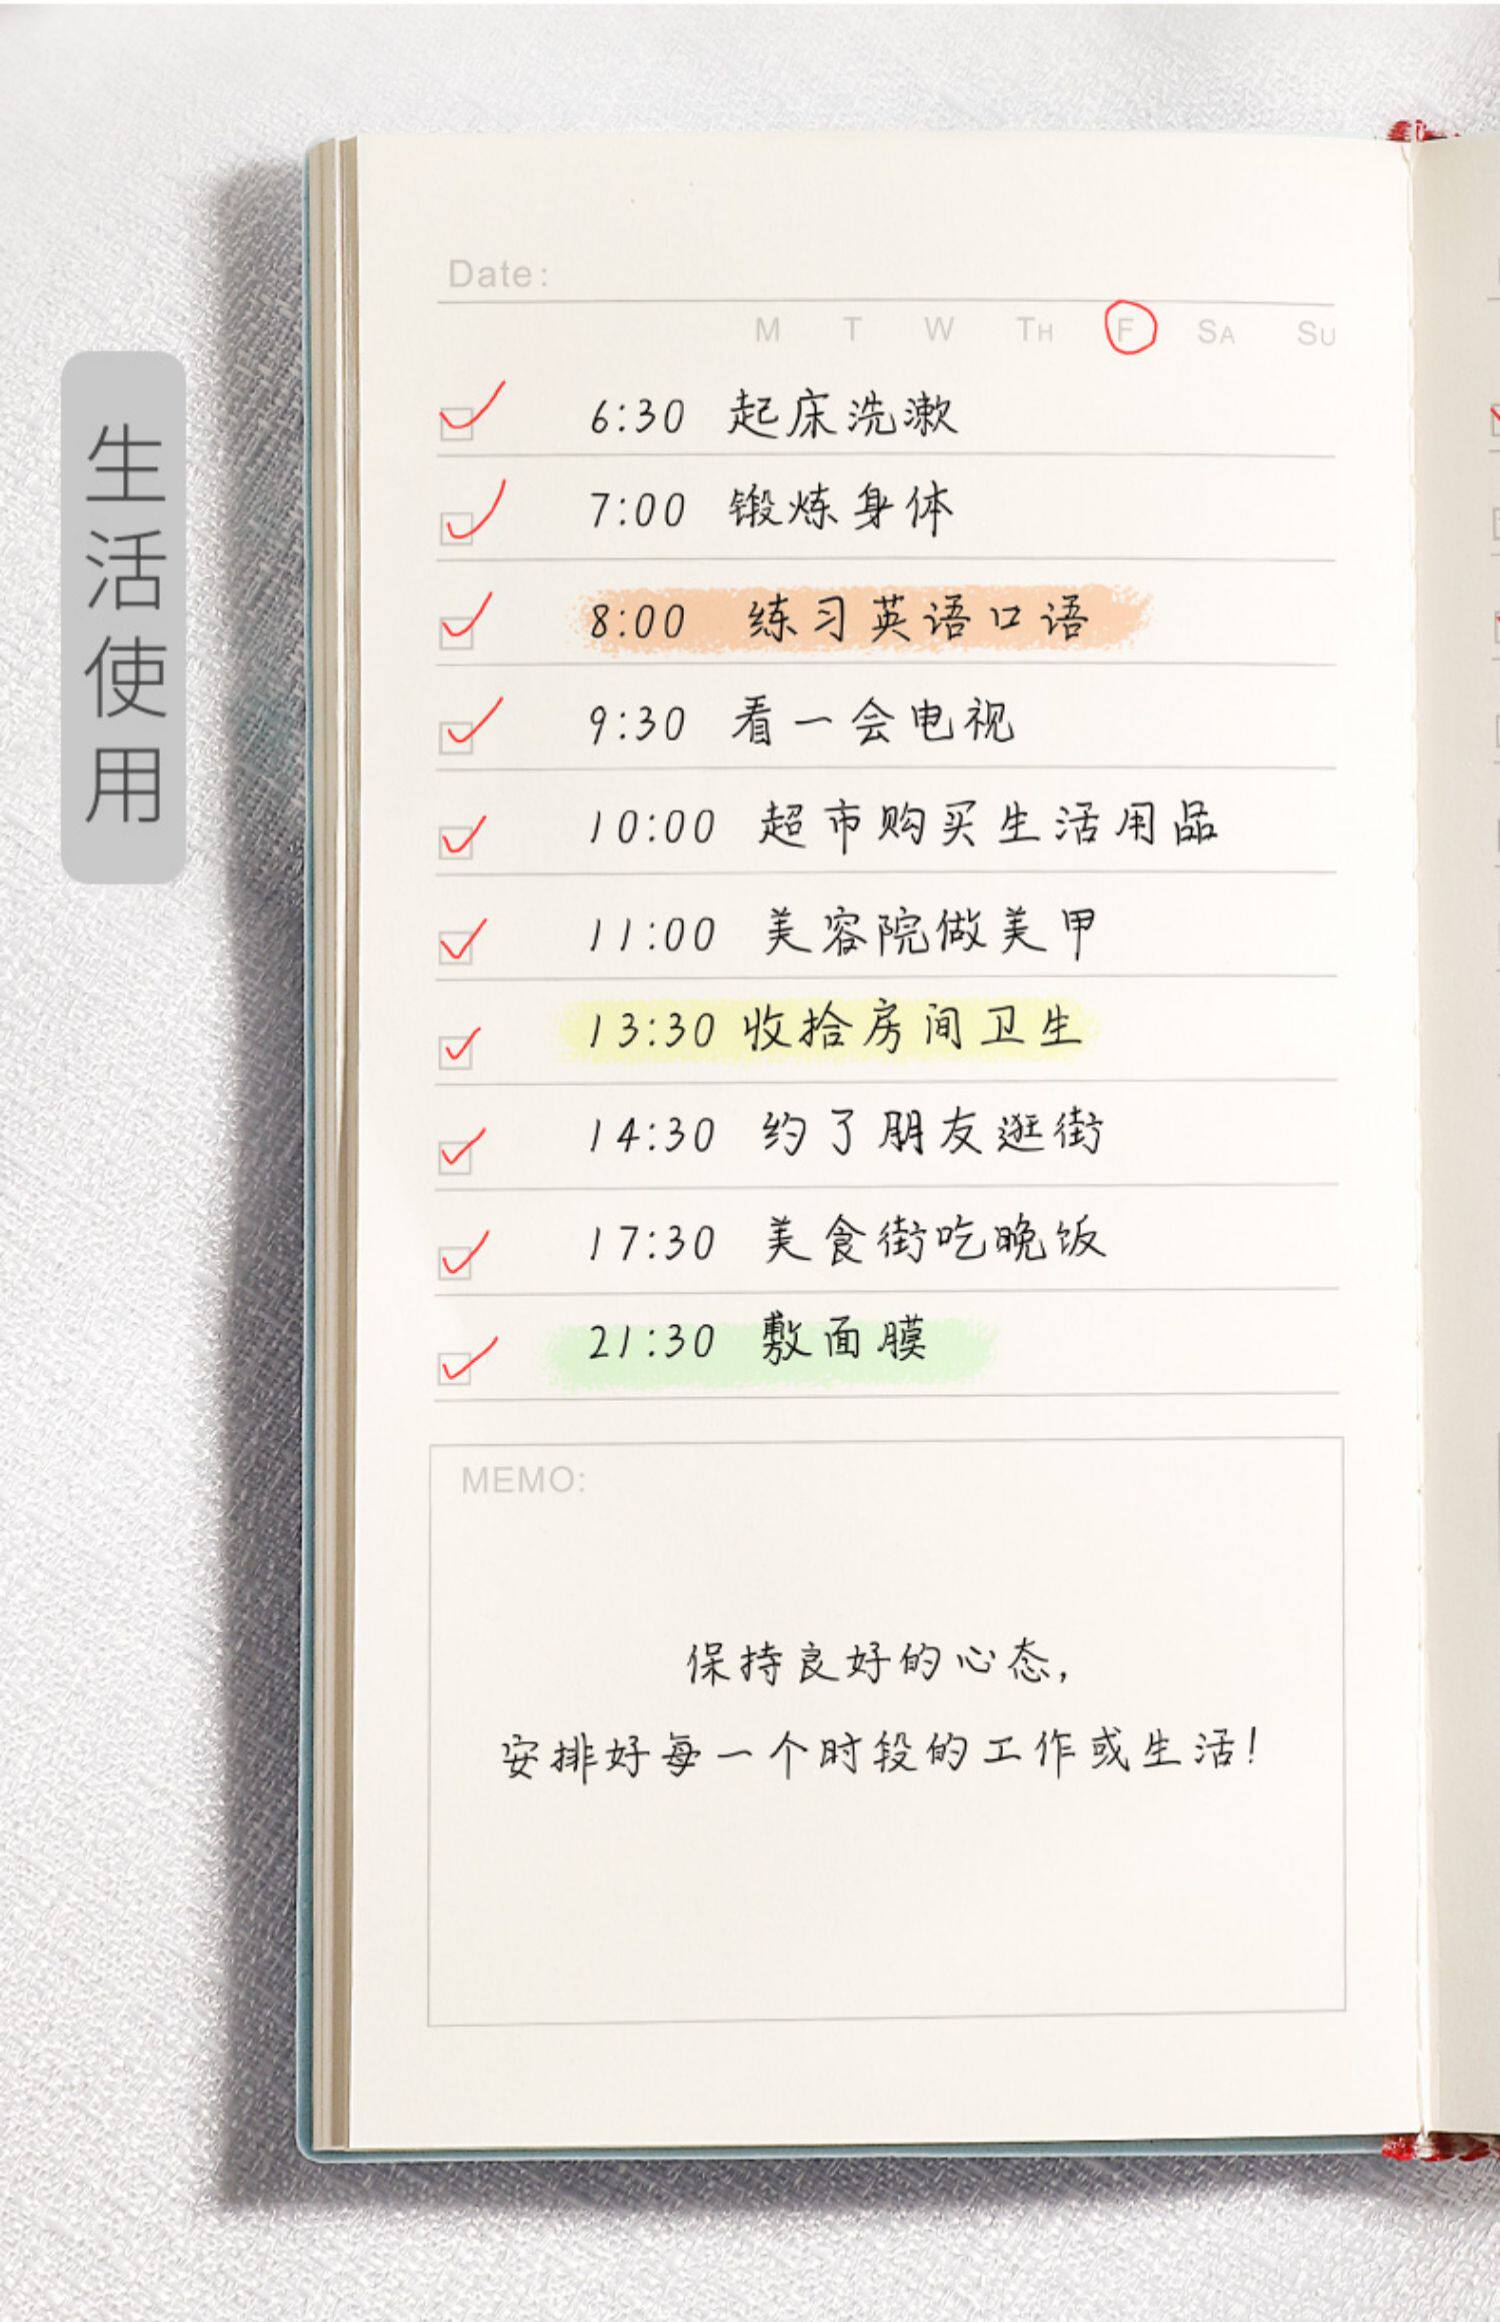 生活使用
Date:
M T W TH F SA SU
6:30 起床洗漱
7:00 锻炼身体
8:00 练习英语口语
9:30 看一会电视
10:00 超市购买生活用品
11:00 美容院做美甲
13:30 收拾房间卫生
14:30 约了朋友逛街
17:30 美食街吃晚饭
21:30 敷面膜
MEMO:
保持良好的心态,
安排好每一个时段的工作或生活!